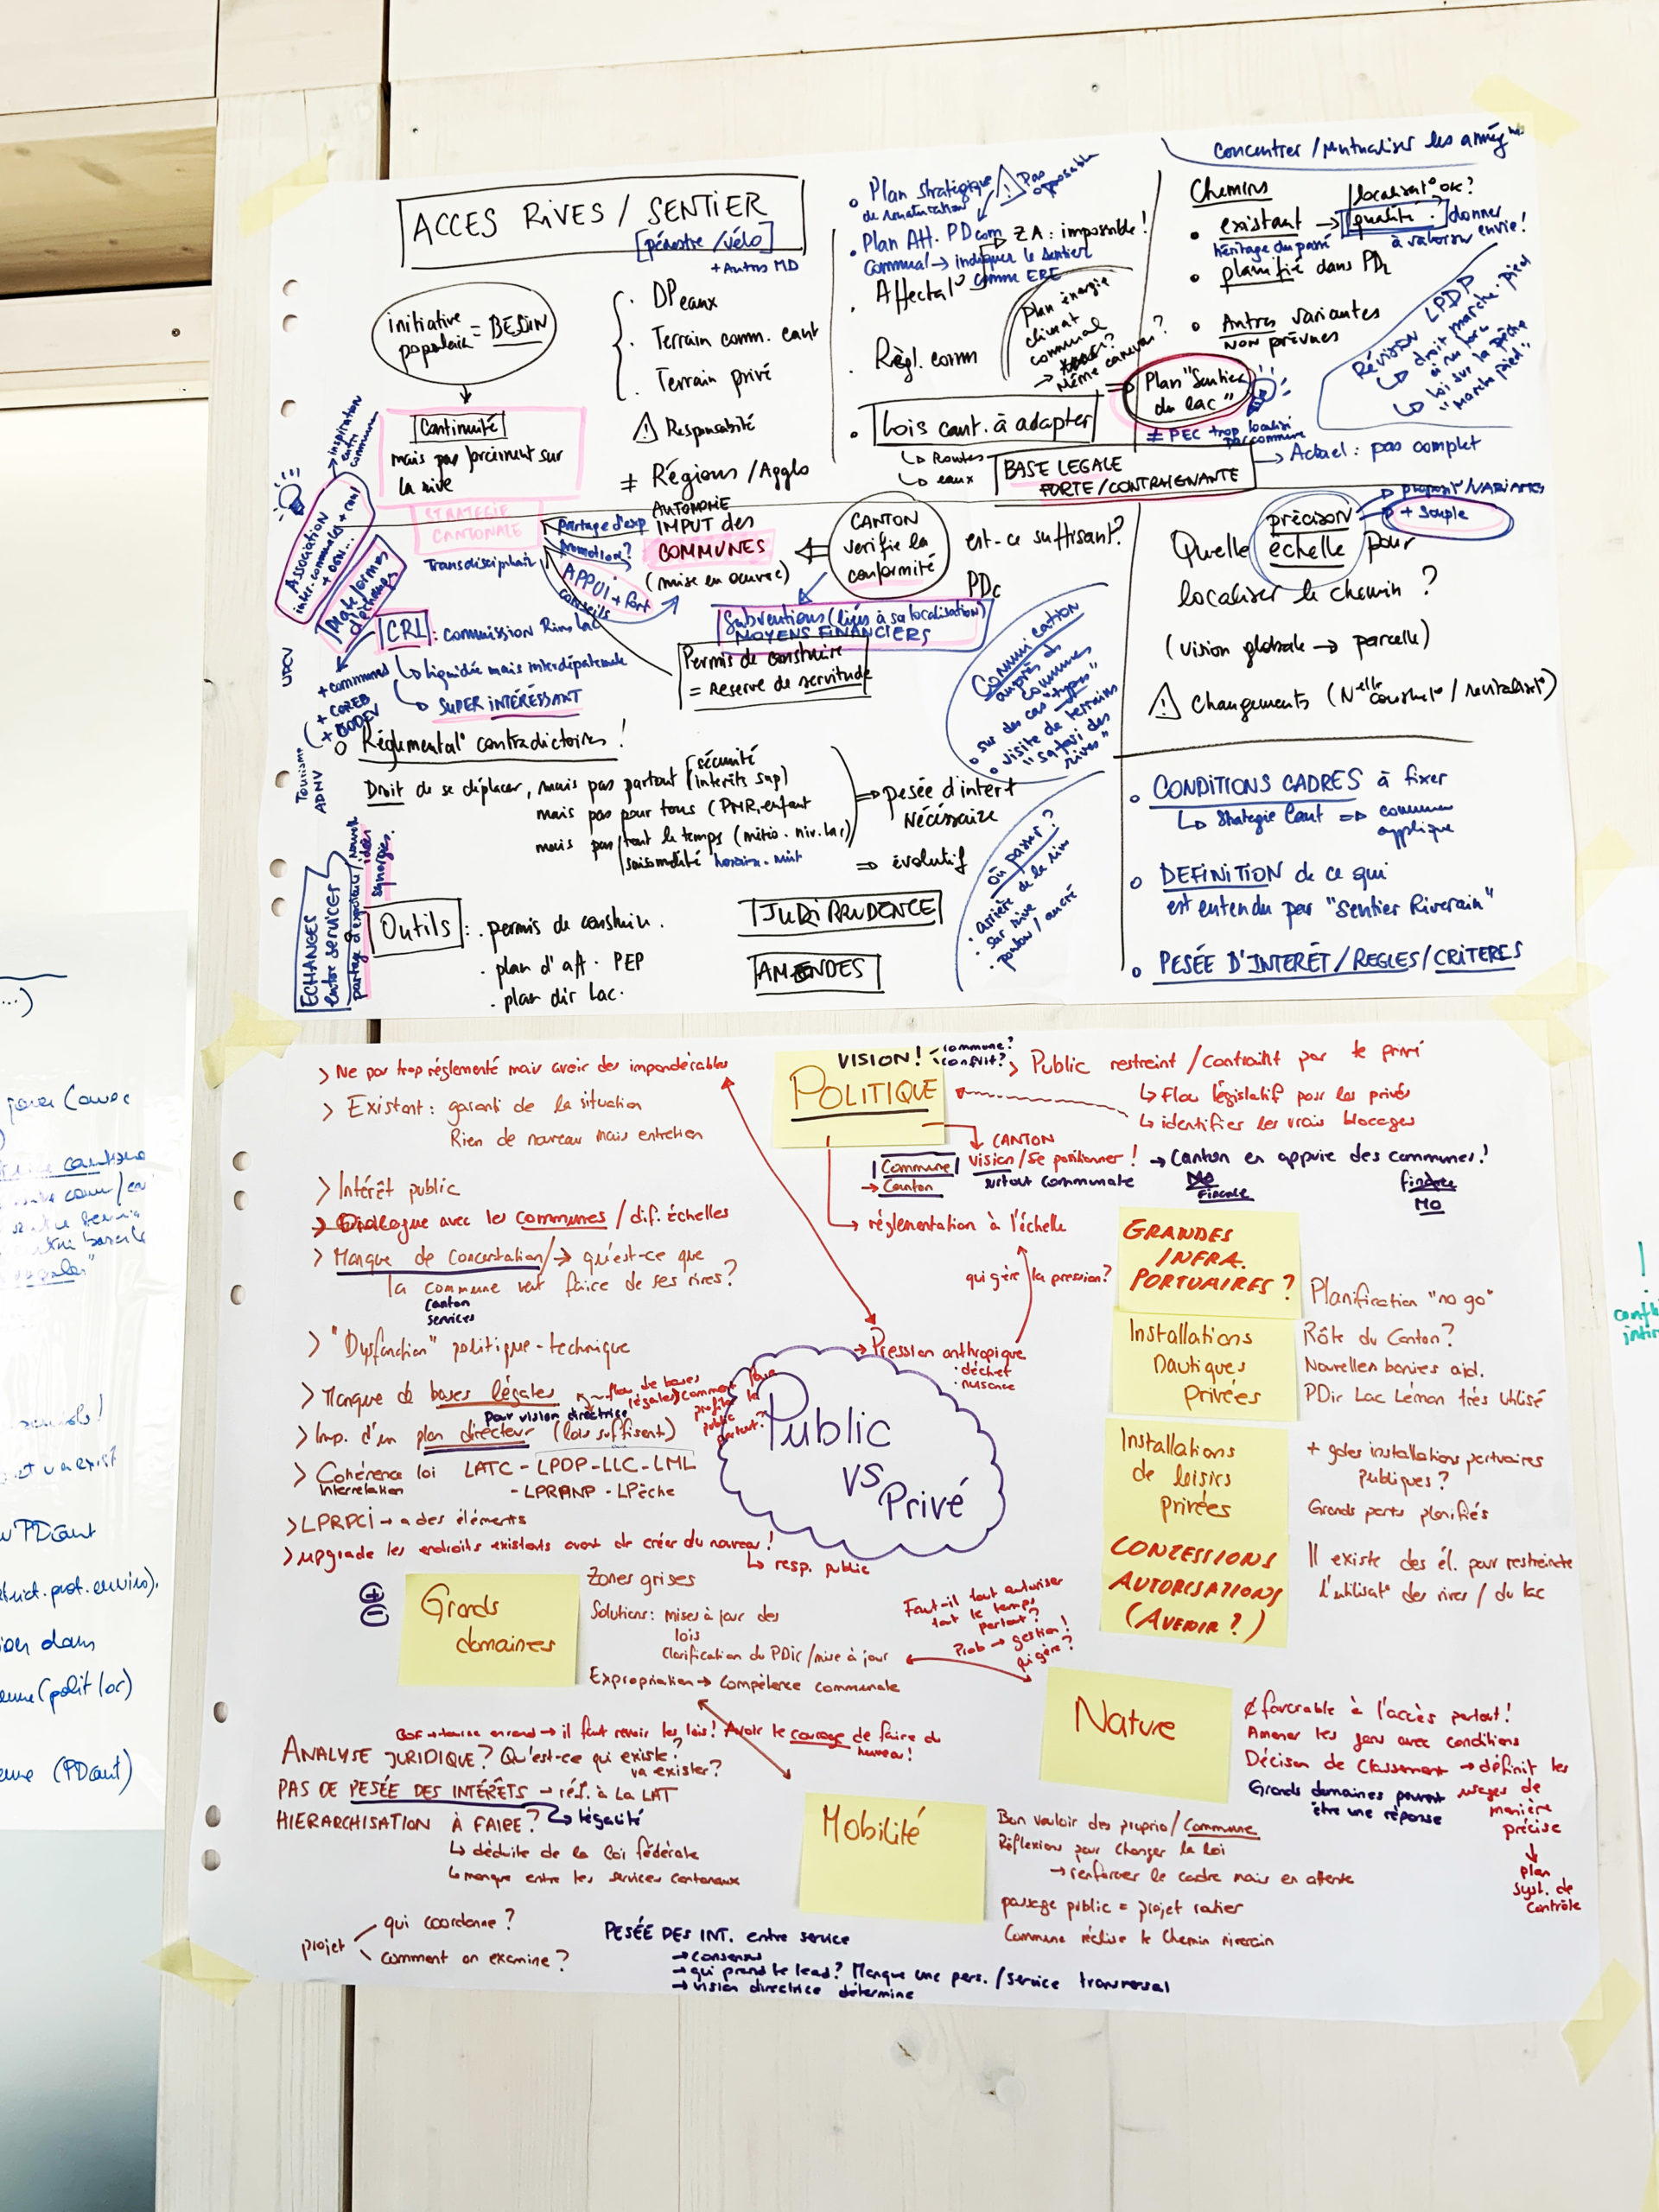 ACCES RIVES / SENTIER
[pédestre /vélo]
+ Autres MD
initiative
populaire = BESOIN
Continuité
mais pas forcément sur
la rive
STRATEGIE
CANTONALE
Transdisciplinaire
· DP eaux
· Terrain comm. cant
· Terrain privé
⚠ Responsabilité
≠ Régions / Agglo
AUTONOMIE
IMPUT des
COMMUNES
(mise en œuvre)
partage d'exp
promotion?
APPUI + fort
conseils
CANTON
verifie la
conformité
est-ce suffisant?
PDc
Subventions (liées à sa localisation)
MOYENS FINANCIERS
Permis de construire
= Reserve de servitude
• Plan stratégique
de renaturation
⚠ Pas opposable
• Plan Aff. PDcom
ZA : impossible !
Communal → indiquer le sentier
comme ERE
· Affectat°
· Règl. comm
Plan énergie
climat
communal
→ Même canevas ?
· Lois cant. à adapter
↳ Routes
↳ eaux
BASE LEGALE
FORTE/CONTRAIGNANTE
→ Actuel : pas complet
⇒ Plan "Sentier
du lac"
≠ PEC trop localisé
par commune
Concentrer / Mutualiser les aménag
Chemins
• existant → qualité
localisat° ok?
donner
envie !
héritage du passé
à valoriser
• planifié dans PDc
• Autres variantes
NON prévues
Révision LPDP
↳ droit marche-pied
↳ loi sur la pêche
"marche pied"
→ inspiration
entre
communes
Association
inter-communales + cant
Plateformes
d'échanges
CRL : Commission Rives Lac
↳ liquidée mais interdépartementale
↳ SUPER INTÉRESSANT
+ communes
+ COREB
Tourisme
ADNV
précision
Quelle échelle pour
localiser le chemin ?
+ souple
(vision globale → parcelle)
⚠ Changements (Nelle construct° / revitalisat°)
Communication
auprès des
communes
• sur des cas "types"
• visite de terrains
"safari des
rives"
• Réglementat° contradictoires !
Droit de se déplacer, mais pas partout
(sécurité
interêts sup)
mais pas pour tous (PMR, enfant
mais pas tout le temps (météo. niv. lac)
saisonnalité horaire - nuit
⇒ pesée d'intert
NÉCESSAIRE
⇒ évolutif
où passer ?
· arrière de la rive
· sur rive
· ponton / ancré
• CONDITIONS CADRES à fixer
↳ Strategie Cant ⇒ commune
applique
• DEFINITION de ce qui
est entendu par "Sentier Riverain"
• PESÉE D'INTERÊT / REGLES / CRITERES
ECHANGES
entre services
Outils : · permis de construire.
· plan d'aff. PEP
· plan dir Lac.
JURIPRUDENCE
AMENDES
> Ne pas trop réglementé mais avoir des impondérables
> Existant : garanti de la situation
Rien de nouveau mais entretien
> Intérêt public
> Dialogue avec les communes / dif. échelles
> Manque de concertation / → qu'est-ce que
la commune veut faire de ses rives ?
Canton
services
> "Dysfonction" politique - technique
> Manque de bases légales
pour vision directrice
> Imp. d'un plan directeur (lois suffisent)
> Cohérence loi LATC - LPDP - LLC - LML
interrelation
- LPRPNP - LPêche
> LPRPCI → a des éléments
> upgrade les endroits existants avant de créer du nouveau !
↳ resp. public
VISION !
commune ?
conflit ?
POLITIQUE
> Public restreint / contraint par le privé
↳ Flou législatif pour les privés
↳ identifier les vrais blocages
CANTON
Commune
→ Canton
vision / Se positionner !
surtout communale
→ Canton en appuie des communes !
MO
réglementation à l'échelle
qui gère la pression ?
→ Pression anthropique
· déchet
· nuisance
Public
vs
Privé
GRANDES
INFRA.
PORTUAIRES ?
Planification "no go"
Installations
Nautiques
privées
Rôle du Canton ?
Nouvelles bornes aid.
PDir Lac Léman très utilisé
Installations
de loisirs
privées
+ gdes installations portuaires
publiques ?
Grands ports planifiés
CONCESSIONS
AUTORISATIONS
(AVENIR ?)
Il existe des él. pour restreindre
l'utilisat° des rives / du lac
⊕
⊖
Grands
domaines
Zones grises
Solutions : mises à jour des
lois
Clarification du PDir / mise à jour
Expropriation → compétence communale
Faut-il tout autoriser
tout le temps
partout ?
Prob → gestion !
qui gère ?
Nature
∉ favorable à l'accès partout !
Amener les gens avec conditions
Décision de Classement → définit les
usages de
manière
précise
Grands domaines peuvent
être une réponse
↓
plan
syst. de
contrôle
→ il faut revoir les lois ! Avoir le courage de faire du
nouveau !
ANALYSE JURIDIQUE ? Qu'est-ce qui existe ?
va exister ?
PAS DE PESÉE DES INTÉRÊTS → réf. à la LAT
HIERARCHISATION À FAIRE ? ↳ légalité
↳ déduite de la loi fédérale
↳ manque entre les services cantonaux
Mobilité
Bon vouloir des proprio / Commune
Réflexions pour changer la loi
→ renforcer le cadre mais en attente
passage public = projet routier
Commune réalise le chemin riverain
projet
qui coordonne ?
comment on examine ?
PESÉE DES INT. entre service
→ consensus
→ qui prend le lead ? Manque une pers. / service transversal
→ vision directrice détermine